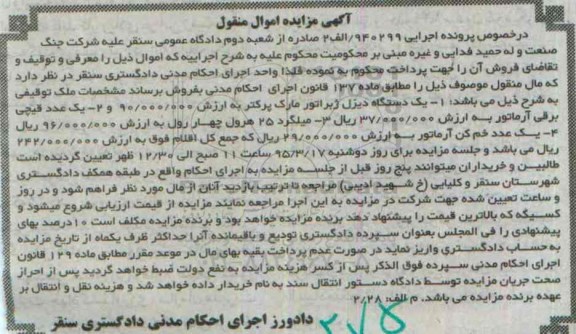 آگهی مزایده اموال منقول
درخصوص پرونده اجرایی ۹۴۰۲۹۹/الف۲ صادره از شعبه دوم دادگاه عمومی سنقر علیه شرکت جنگ
صنعت و له حمید فدایی و غیره مبنی بر محکومیت محکوم علیه به شرح اجراییه که اموال ذیل را معرفی و توقیف و
تقاضای فروش آن را جهت پرداخت محکوم به نموده فلذا واحد اجرای احکام مدنی دادگستری سنقر در نظر دارد
که مال منقول موصوف ذیل را مطابق ماده ۱۳۷ قانون اجرای احکام مدنی بفروش برساند مشخصات ملک توقیفی
به شرح ذیل می باشد: ۱- یک دستگاه دیزل ژنراتور مارک پرکنز به ارزش ۹۰/۰۰۰/۰۰۰ و ۲- یک عدد قیچی
برقی آرماتور به ارزش ۳۷/۰۰۰/۰۰۰ ریال ۳- میلگرد ۲۵ هرول چهار رول به ارزش ۹۶/۰۰۰/۰۰۰ ریال
۴- یک عدد خم کن آرماتور به ارزش ۲۹/۰۰۰/۰۰۰ ریال که جمع کل اقلام فوق به ارزش ۲۴۲/۰۰۰/۰۰۰
ریال می باشد و جلسه مزایده برای روز دوشنبه ۹۵/۳/۱۷ ساعت ۱۱ صبح الی ۱۲/۳۰ ظهر تعیین گردیده است
طالبین و خریداران میتوانند پنج روز قبل از جلسه مزایده به اجرای احکام واقع در طبقه همکف دادگستری
شهرستان سنقر و کلیایی (خ شهید ادیبی) مراجعه تا ترتیب بازدید آنان از مال مورد نظر فراهم شود و در روز
و ساعت تعیین شده جهت شرکت در مزایده به این اجرا مراجعه نمایند مزایده از قیمت ارزیابی شروع میشود و
کسیکه که بالاترین قیمت را پیشنهاد دهد برنده مزایده خواهد بود و برنده مزایده مکلف است ۱۰درصد بهای
پیشنهادی را فی المجلس بعنوان سپرده دادگستری تودیع و باقیمانده آنرا حداکثر ظرف یکماه از تاریخ مزایده
به حساب دادگستری واریز نماید در صورت عدم پرداخت بقیه بهای مال در موعد مقرر مطابق ماده ۱۲۹ قانون
اجرای احکام مدنی سپرده فوق الذکر پس از کسر هزینه مزایده به نفع دولت ضبط خواهد گردید پس از احراز
صحت جریان مزایده توسط دادگاه دستور انتقال سند به نام خریدار داده خواهد شد و هزینه نقل و انتقال بر
عهده برنده مزایده می باشد. م الف: ۲/۲۸
دادورز اجرای احکام مدنی دادگستری سنقر